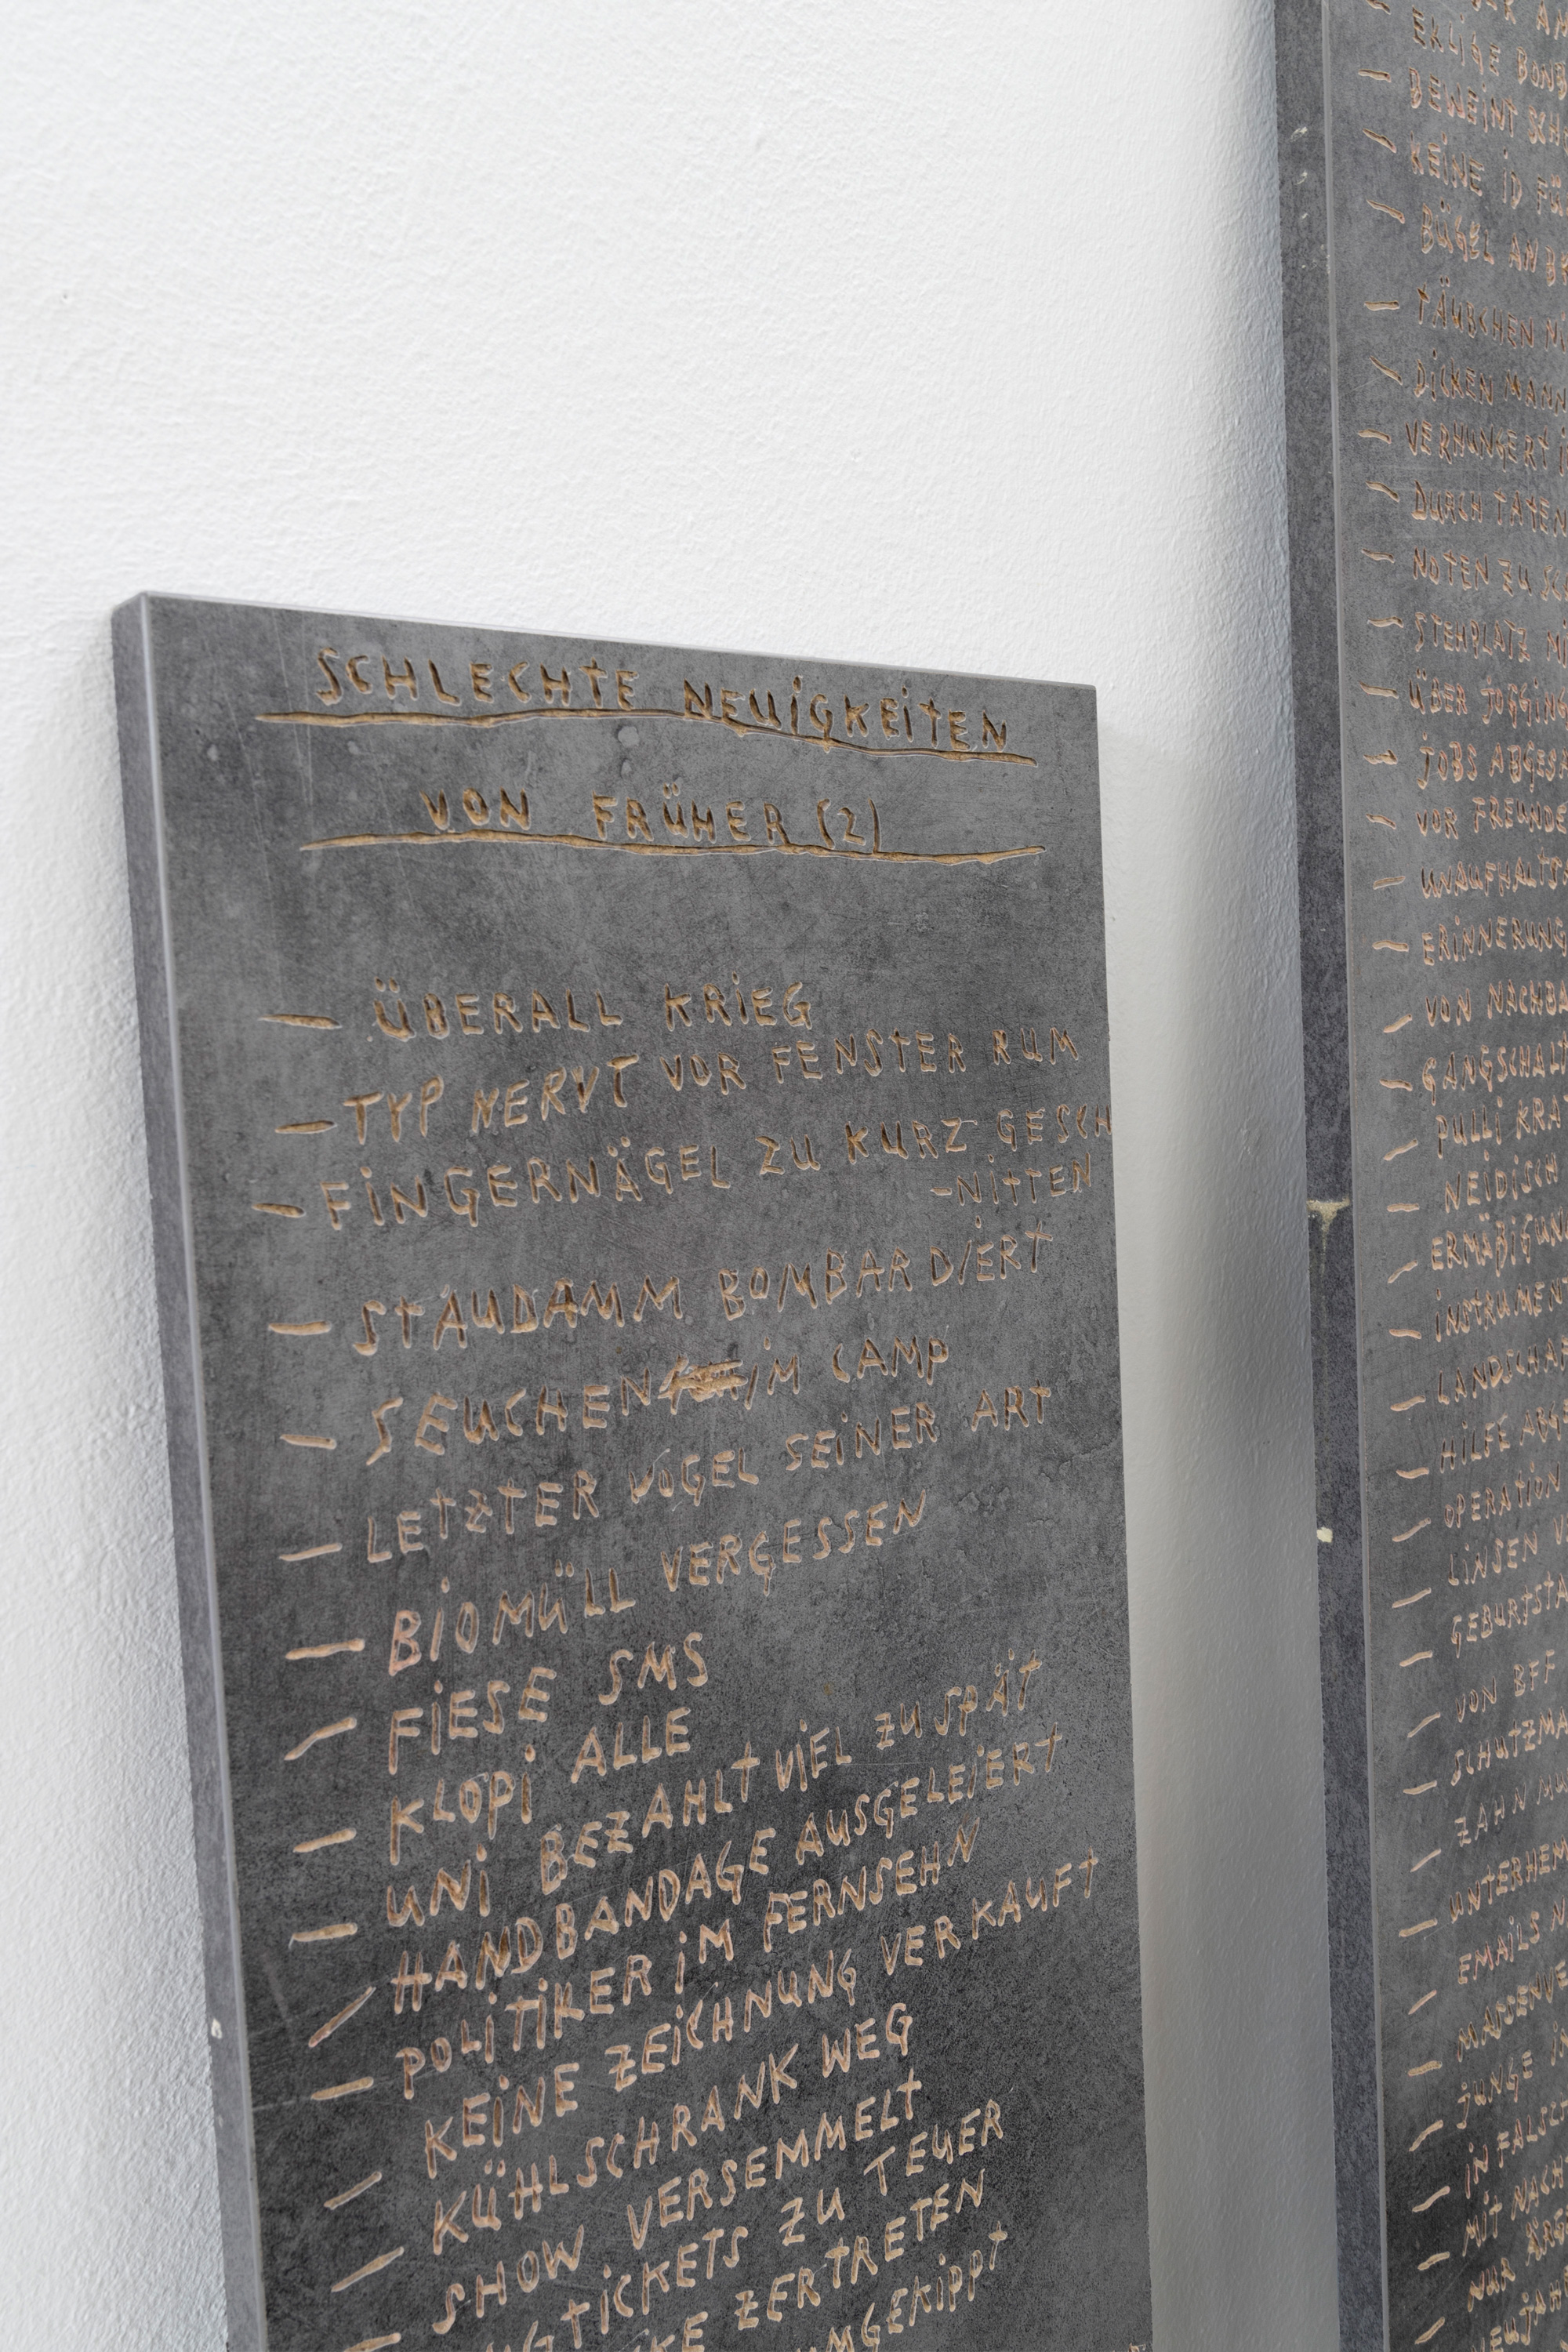 SCHLECHTE NEUIGKEITEN
VON FRÜHER (2)
— ÜBERALL KRIEG
— TYP NERVT VOR FENSTER RUM
— FINGERNÄGEL ZU KURZ GESCH
-NITTEN
— STAUDAMM BOMBARDIERT
— SEUCHEN IM CAMP
— LETZTER VOGEL SEINER ART
— BIOMÜLL VERGESSEN
— FIESE SMS
— KLOPI ALLE
— UNI BEZAHLT VIEL ZU SPÄT
— HANDBANDAGE AUSGELEIERT
— POLITIKER IM FERNSEHN
— KEINE ZEICHNUNG VERKAUFT
— KÜHLSCHRANK WEG
— SHOW VERSEMMELT
TICKETS ZU TEUER
ZERTRETEN
EKLIGE
— BEWEINT
— KEINE ID
— BÜGEL AN
— TÄUBCHEN
— DICKEN MANN
— VERHUNGERT
— DURCH TATEN
— NOTEN ZU
— STEHPLATZ
— ÜBER JOGGING
— JOBS
— VOR FREUNDE
— UNAUFHALTS
— ERINNERUNG
— VON NACHBA
— GANGSCHALT
— PULLI KRA
— NEIDISCH
— ERMÄßIGUN
— INSTRUMEN
— LANDSCHA
— HILFE
— OPERATION
— LINSEN
— GEBURTSTA
— VON BFF
— SCHUTZM
— ZAHN
— UNTERHEM
— EMAILS
— MASSEN
— JUNGE
— IN FALSC
— MIT NACHT
— NUR